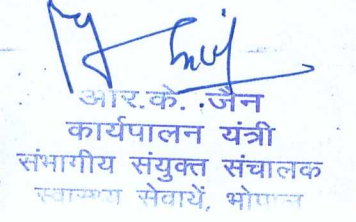 आर.के. .जैन
कार्यपालन यंत्री
संभागीय संयुक्त संचालक
स्वास्थ्य सेवायें, भोपाल